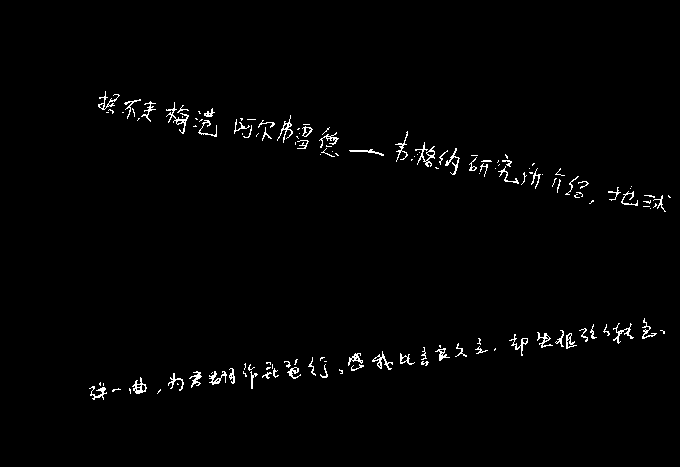 据不来梅港阿尔弗雷德一韦格纳研究所介绍，地球
弹一曲，为君翻作琵琶行。感我此言良久立，却坐促弦弦转急。